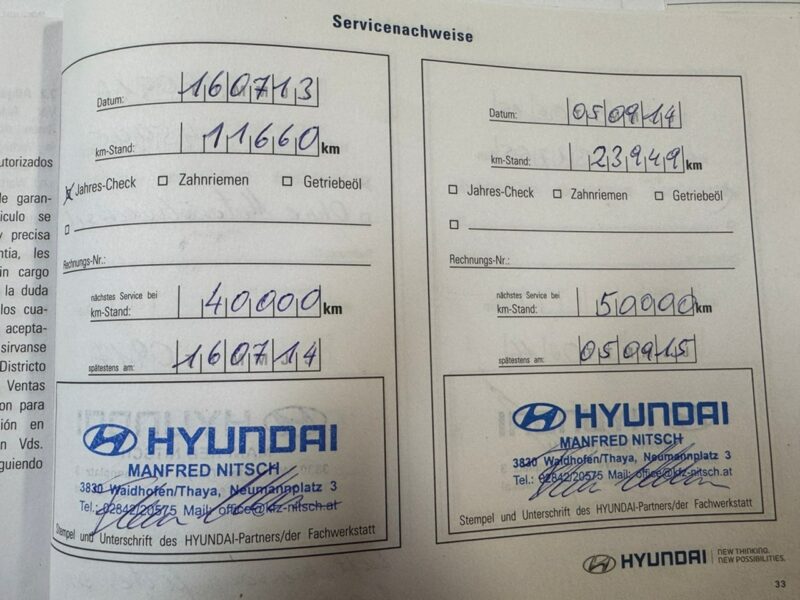 Servicenachweise
utorizados
e garan-
ículo se
y precisa
ntía, les
in cargo
la duda
los cua-
acepta-
sirvanse
Districto
Ventas
on para
ión en
n Vds.
guiendo
Datum: 160713
km-Stand: 11660 km
Jahres-Check Zahnriemen Getriebeöl
Rechnungs-Nr.:
nächstes Service bei
km-Stand: 40000 km
spätestens am: 160714
HYUNDAI
MANFRED NITSCH
3830 Waidhofen/Thaya, Neumannplatz 3
Tel.: 02842/20575 Mail: office@kfz-nitsch.at
Stempel und Unterschrift des HYUNDAI-Partners/der Fachwerkstatt
Datum: 050914
km-Stand: 23949 km
Jahres-Check Zahnriemen Getriebeöl
Rechnungs-Nr.:
nächstes Service bei
km-Stand: 50000 km
spätestens am: 050915
HYUNDAI
MANFRED NITSCH
3830 Waidhofen/Thaya, Neumannplatz 3
Tel.: 02842/20575 Mail: office@kfz-nitsch.at
Stempel und Unterschrift des HYUNDAI-Partners/der Fachwerkstatt
HYUNDAI NEW THINKING.
NEW POSSIBILITIES.
33